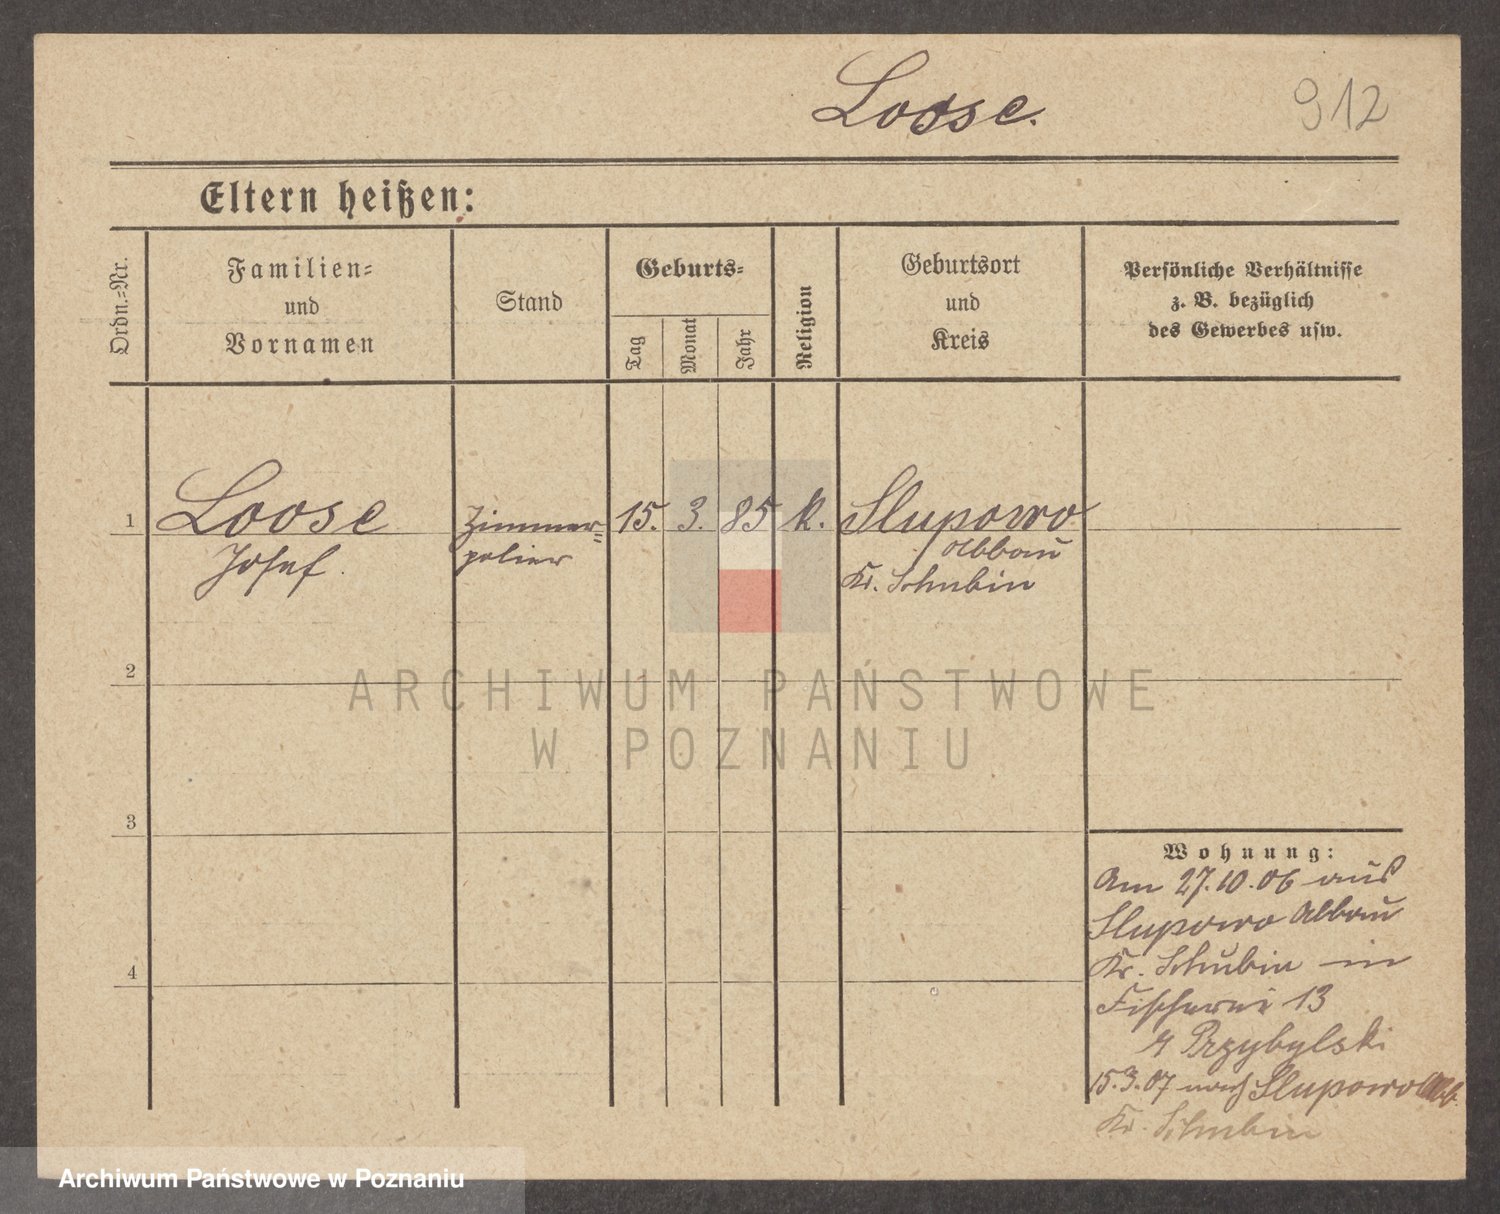 Loose.
912
Eltern heißen:
Ordn.=Nr.
Familien=
und
Vornamen
Stand
Geburts=
Tag
Monat
Jahr
Religion
Geburtsort
und
Kreis
Persönliche Verhältnisse
z. B. bezüglich
des Gewerbes usw.
1
Loose
Josef.
Zimmer=
polier
15. 3. 85
k.
Slupowo
Abbau
Kr. Schubin
2
ARCHIWUM PAŃSTWOWE
W POZNANIU
3
4
Wohnung:
Am 27.10.06 aus
Slupowo Abbau
Kr. Schubin in
Fischerei 13
Przybylski
15.3.07 nach Slupowo Abb.
Kr. Schubin
Archiwum Państwowe w Poznaniu